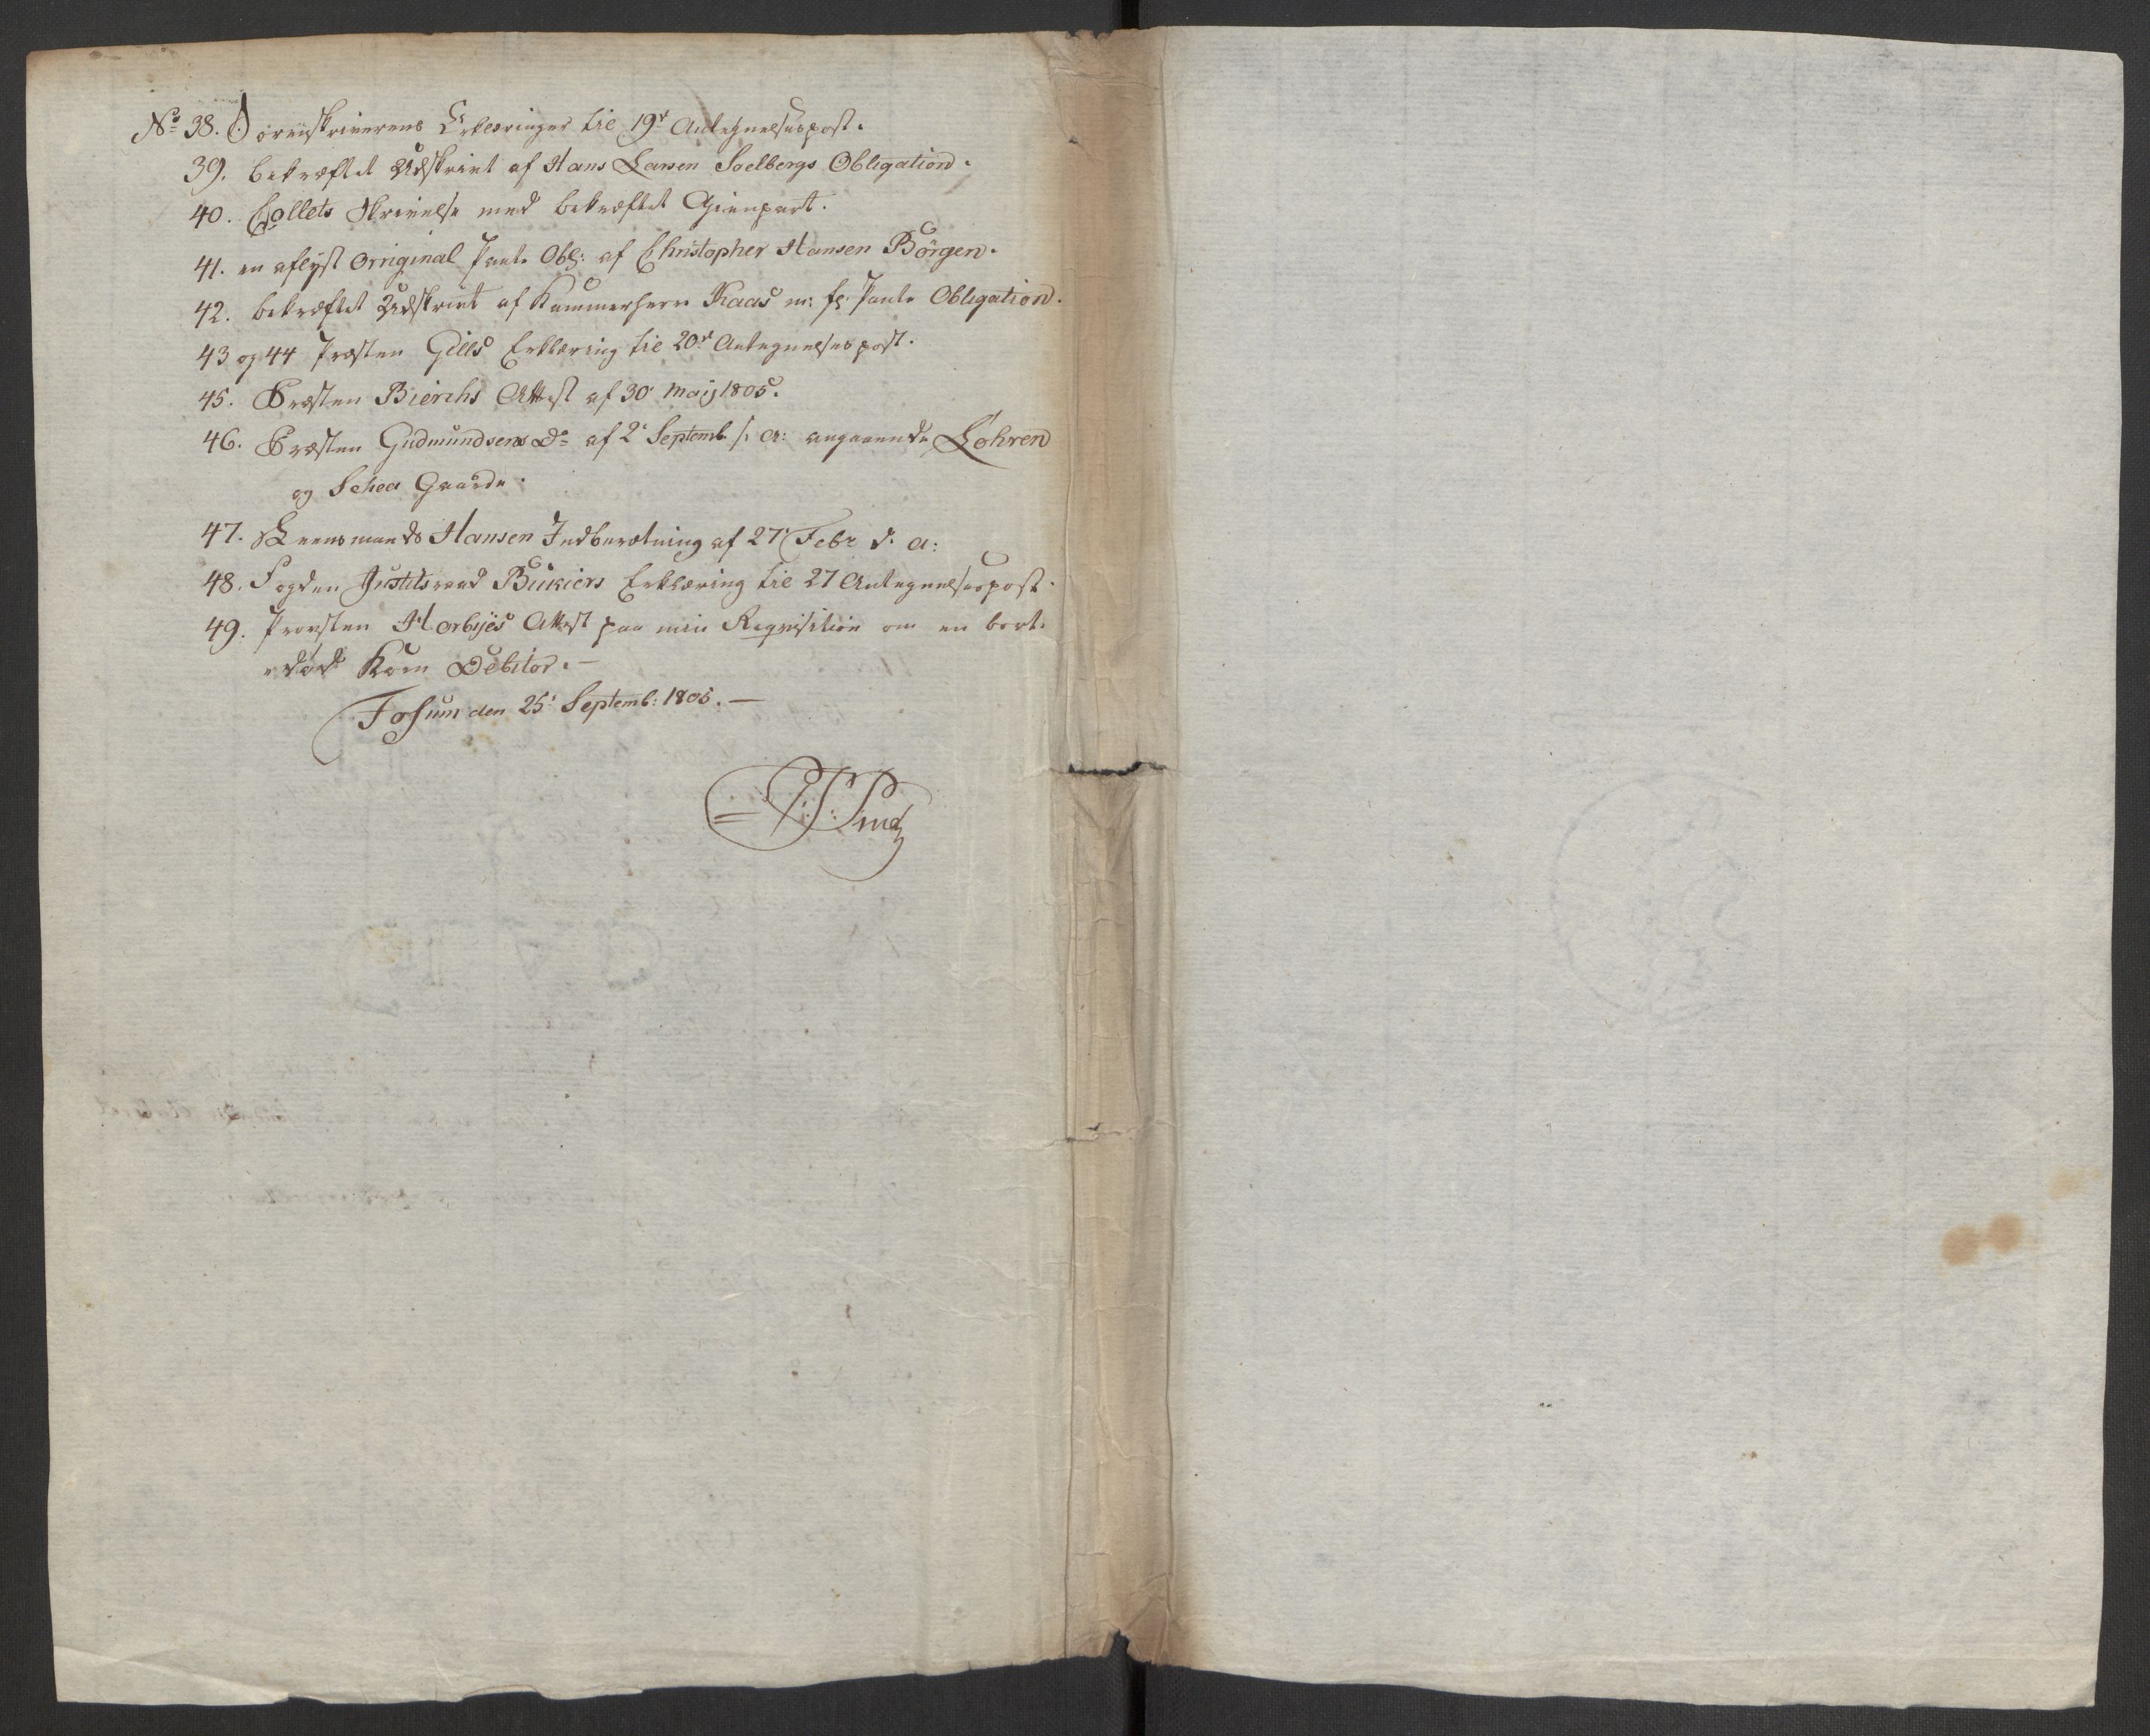 No 38. Sorenskriverens Erklæringer til 19de Antegnelsespost.
39. bekræftet Udskrivt af Hans Larsen Soelbergs Obligation.
40. Collets Skrivelse med bekræftet Gienpart.
41. en aflyst Orriginal Pante Obl: af Christopher Hansen Börgen.
42. bekræftet Udskrivt af Kammerherr Kaas m: fl. Pante Obligation.
43 og 44 Præsten Gills Erklæring til 20de Antegnelsespost.
45. Præsten Bierchs Attest af 30 Maij 1805.
46. Præsten Gudmundsens Do af 2' Septemb. s. a: angaaende Løhren
og Schea Gaarde.
47. Leensmands Hansen Indberetning af 27' Febr d. a:
48. Fogden Justitsraad Bukiers Erklæring til 27 Antegnelsespost.
49. Provsten Horbyes Attest paa min Reqvisition om en bort-
død Korn Debitor. —
Fossum den 25' Septemb: 1805. —